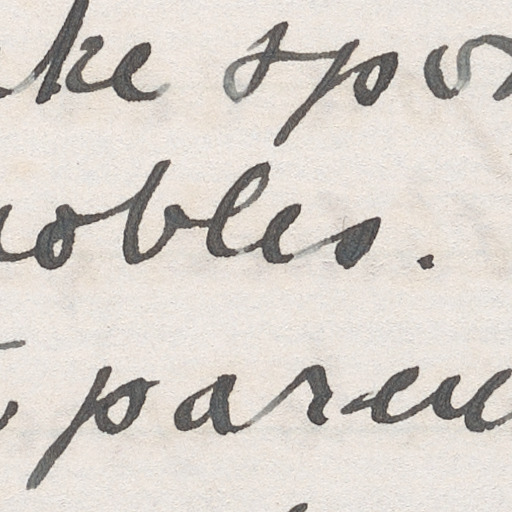 ke spor
obles.
paren